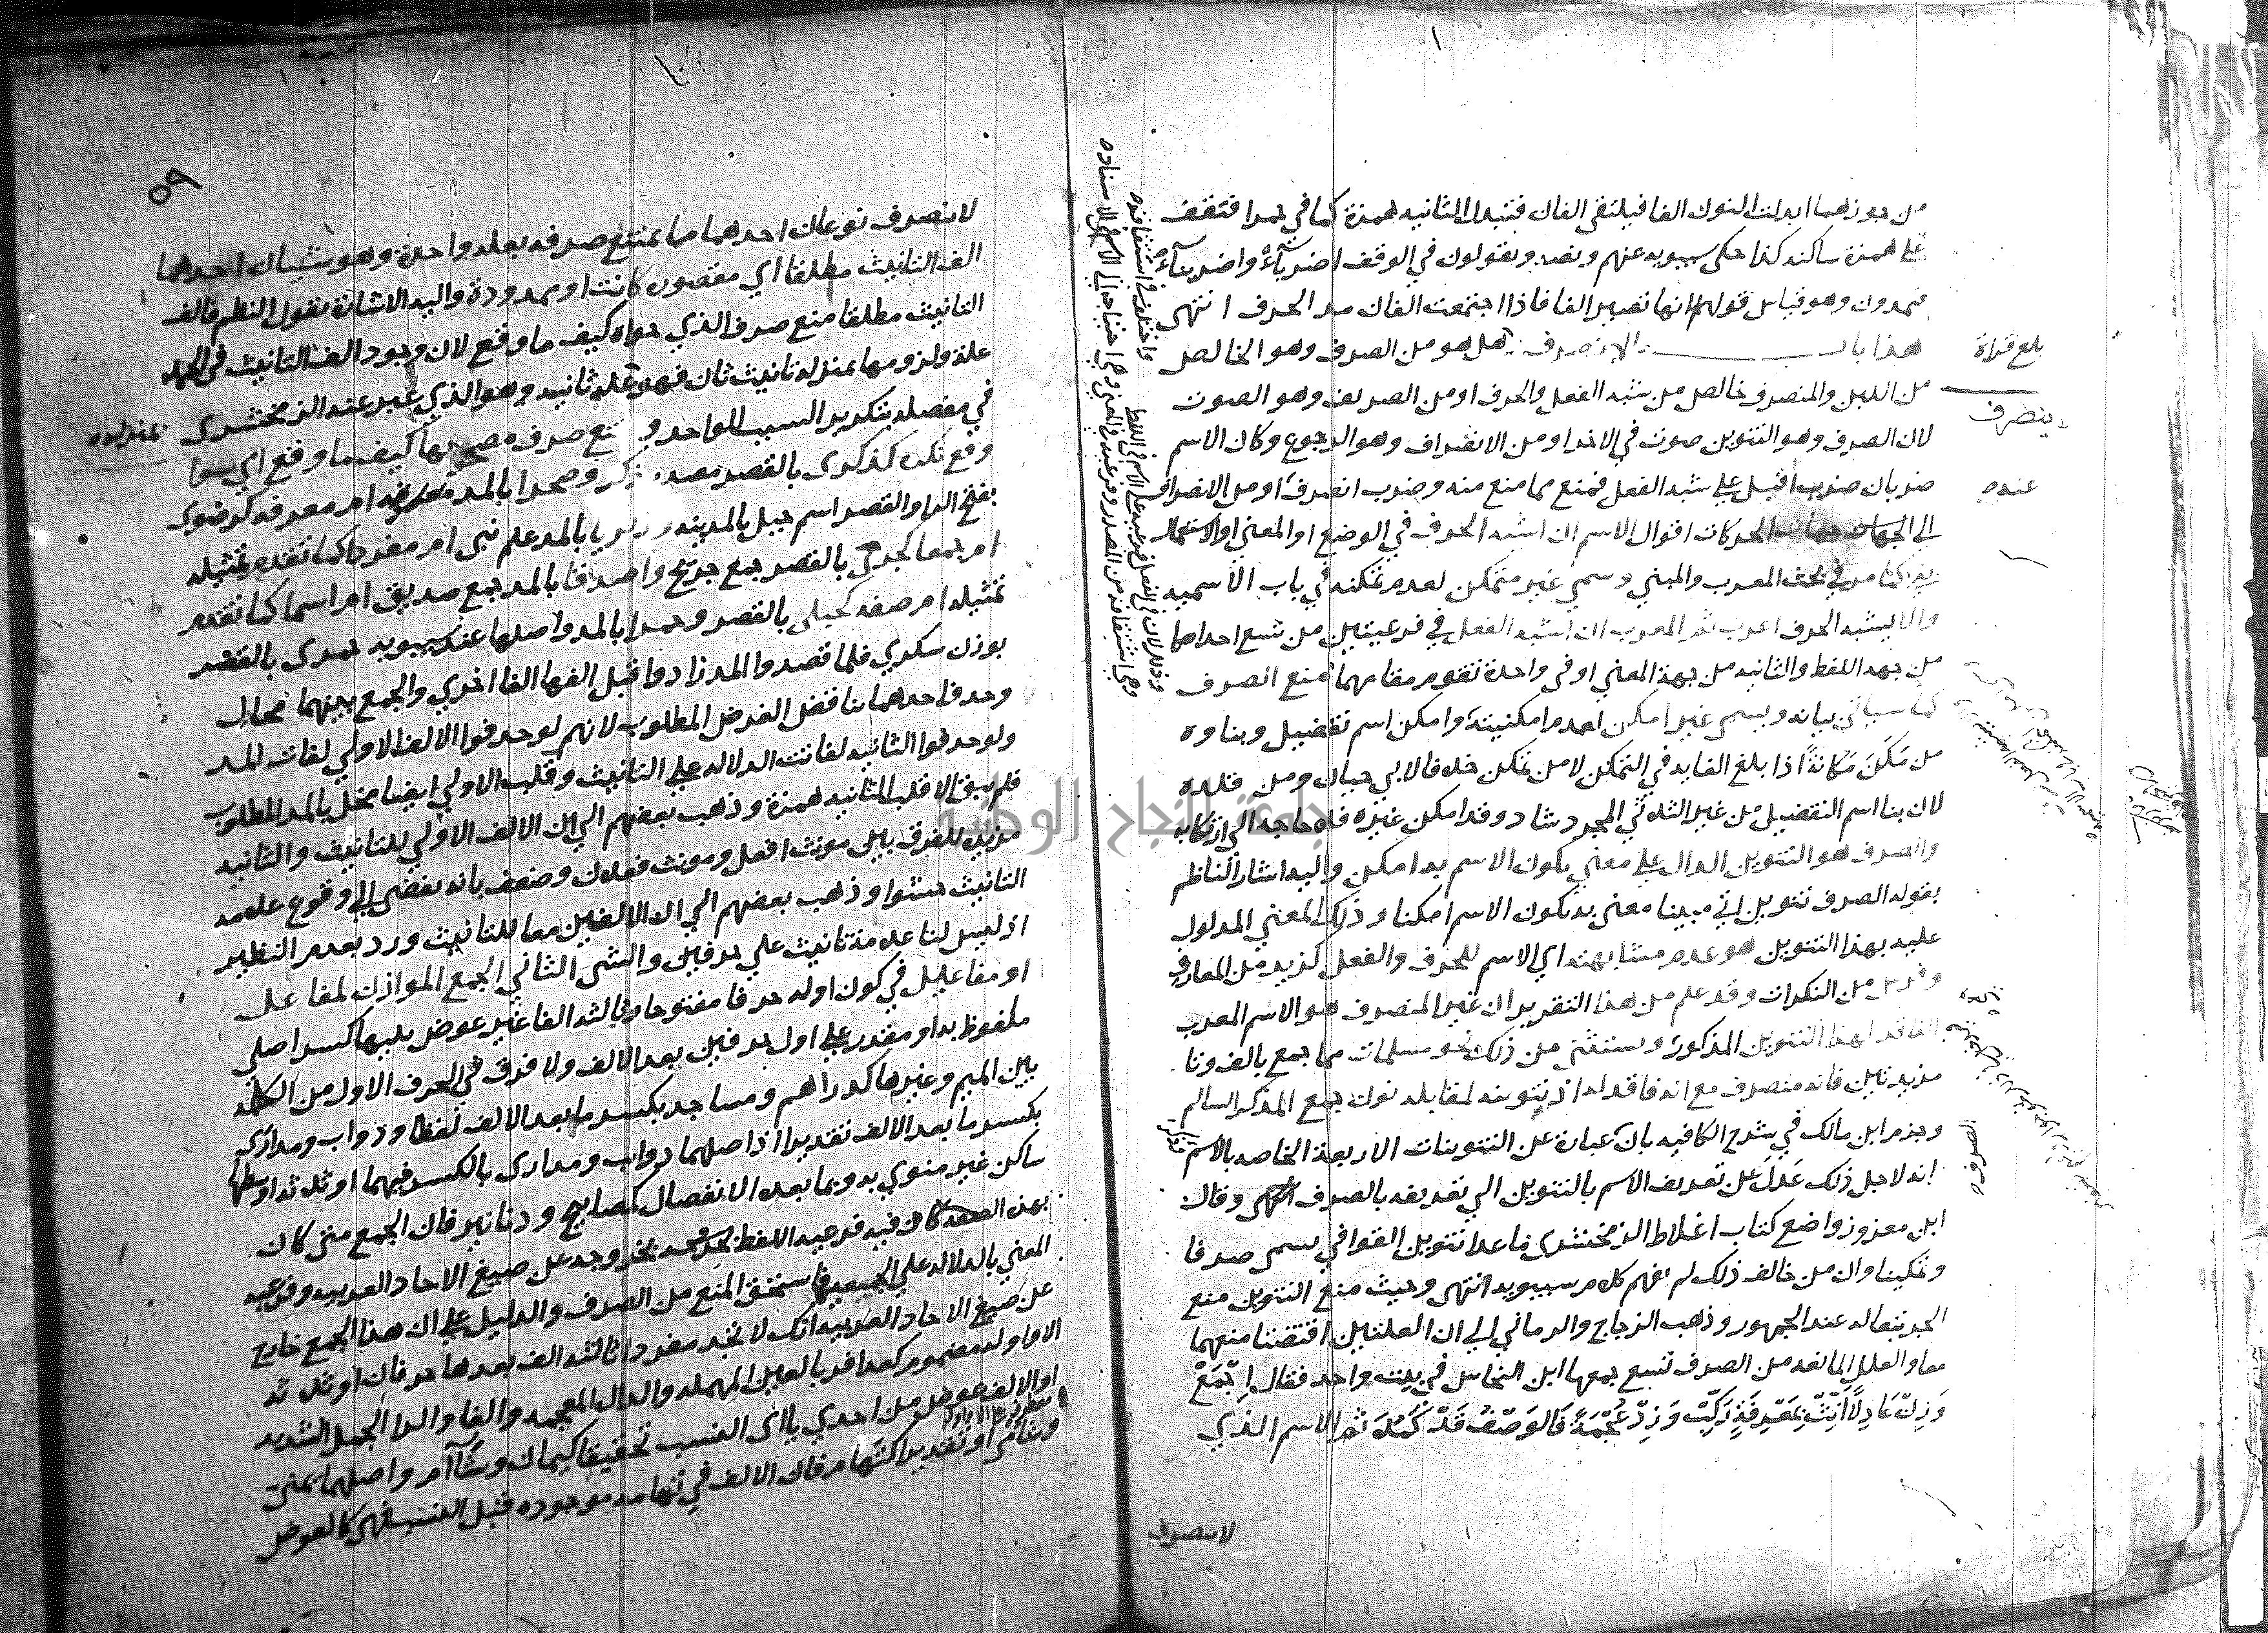 من جوزهما ابدلت النون الفا فيلتقي الفان فتبدل الثانيه همزة كما في حمرا فتقف
علي همزة ساكنه كذا حكي سيبويه عنهم ونصه ويقولون في الوقف اضربآء واضربنآء
فيمدون وهو قياس قولهم انها تصير الفا فاذا اجتمعت الفان مد الحرف انتهي
هذا باب الا ينصرف هل هو من الصرف وهو الخالص
من اللبن والمنصرف خالص من شبه الفعل والحرف او من الصريف وهو الصوت
لان الصرف وهو التنوين صوت في الاخر او من الانصراف وهو الرجوع وكان الاسم
ضربان ضرب اقبل علي شبه الفعل فمنع مما منع منه وضرب انصرف او من الانصراف
الي الجهات الحركات اقوال الاسم ان اشبه الحرف في الوضع او المعني او الاستعمال
كما مر في بحث المعرب والمبني وسمي غير متمكن لعدم تمكنه في باب الاسميه
والا يشبه الحرف اعرب ثم المعرب ان اشبه الفعل في فرعيتين من تسع احداهما
من جهه اللفظ والثانيه من جهة المعني او في واحدة تقوم مقامهما منع الصرف
كما سياتي بيانه ويسمي غير امكن لعدم امكنيته وامكن اسم تفضيل وبناوه
من مكن مكانة اذا بلغ الغايه في التمكن لا من تمكن خلافا لابي حيان ومن قلده
لان بنا اسم التفضيل من غير الثلاثي المجرد شاذ وقد امكن غيره فلا حاجه الي ارتكابه
والصرف هو التنوين الدال علي معني يكون الاسم به امكن واليه اشار الناظم
بقوله الصرف تنوين اتي مبينا معني به يكون الاسم امكنا وذلك المعني المدلول
عليه بهذا التنوين هو عدم مشابهته اي الاسم للحرف والفعل كزيد من المعارف
وفرس من النكرات وقد علم من هذا التقرير ان غير المنصرف هو الاسم المعرب
الفاقد لهذا التنوين المذكور ويستثني من ذلك نحو مسلمات مما جمع بالف وتا
مزيدتين فانه منصرف مع انه فاقد له اذ تنوينه لمقابلة نون جمع المذكر السالم
وجزم ابن مالك في شرح الكافيه بان عبارة عن التنوينات الاربعة الخاصه بالاسم
انه لاجل ذلك عدل عن تعريف الاسم بالتنوين الي تعريفه بالصرف انتهي وقال
ابن معزوز واضع كتاب اغلاط الزمخشري ما عدا تنوين القوافي يسمى صرفا
وتمكينا وان من خالف ذلك لم يفهم كلام سيبويه انتهى وحيث منع التنوين منع
الجر تبعا له عند الجمهور وذهب الزجاج والرماني الي ان العلتين اقتضتا منعهما
معا والعلل المانعه من الصرف تسع جمعها ابن النحاس في بيت واحد فقال اجمع
وزن عادلا انث بمعرفة ركب وزد عجمة فالوصف قد كملا ثم الاسم الذي
لا ينصرف
بلغ قراة
ينصرف
عنده
٥٩
لا ينصرف نوعان احدهما ما يمتنع صرفه بعلة واحدة وهو شيان احدهما
الف التانيث مطلقا اي مقصورة كانت او ممدودة واليه الاشارة بقول النظم فالف
التانيث مطلقا منع صرف الذي حواه كيف ما وقع لان وجود الف التانيث في الكلمه
علة ولزومها بمنزلة تانيث ثان فهو علة ثانيه وهو الذي عبر عنه الزمخشري
في مفصله بتكرير السبب الواحد ويمتنع صرف مصحوبها كيف ما وقع اي سوا
وقع نكرة كذكرى بالقصر مصدر ذكر وصحرا بالمد ام معرفه كرضوى
بفتح الرا والقصر اسم جبل بالمدينه وزكريا بالمد علم نبي ام مفردا كما تقدم تمثيله
ام جمعا كجرحى بالقصر جمع جريح واصدقا بالمد جمع صديق ام اسما كما تقدم
تمثيله ام صفه كحبلى بالقصر وحمرا بالمد واصلها عند سيبويه حمرى بالقصر
بوزن سكري فلما قصدوا المد زادوا قبل الفها الفا اخري والجمع بينهما محال
وحذف احدهما يناقض الغرض المطلوب لانهم لو حذفوا الالف الاولي لفات المد
ولو حذفوا الثانيه لفاتت الدلاله علي التانيث وقلب الاولي ايضا مخل بالمد المطلوب
فلم يبق الا قلب الثانيه همزة وذهب بعضهم الي ان الالف الاولي للتانيث والثانيه
مزيده للفرق بين مونث افعل ومونث فعلان وضعف بانه يفضي الي وقوع علامه
التانيث حشوا وذهب بعضهم الي ان الالفين معا للتانيث ورد بعدم النظير
اذ ليس لنا علامة تانيث علي حرفين والشي الثاني الجمع الموازن لمفاعل
او مفاعيل في كون اوله حرفا مفتوحا وثالثه الفا غير عوض يليها كسر اصلي
ملفوظ به او مقدر علي اول حرفين بعد الالف ولا فرق في الحرف الاول من الكلمه
بين الميم وغيرها كدراهم ومساجد بكسر ما بعد الالف لفظا ودواب ومدارى
بكسر ما بعد الالف تقديرا اذ اصلهما دوابب ومدارى بالكسر فيهما او ثلاثه اوسطها
ساكن غير منوي به وبما بعده الانفصال كمصابيح ودنانير فان الجمع متى كان
بهذه الصفه كان فيه فرعيه اللفظ بخروجه عن صيغ الاحاد العربيه وفرعيه
المعني بالدلاله علي الجمعيه فاستحق المنع من الصرف والدليل علي ان هذا الجمع خارج
عن صيغ الاحاد العربيه انك لا تجد مفردا ثالثه الف بعدها حرفان او ثلاثه
الا واوله مضموم كعذافر بالعين المهمله والذال المعجمه والفا والرا الجمل الشديد
او الالف عوض من احدي ياءى النسب تحقيقا كيمان وشآم واصلهما يمنى
وشامى او تقديرا كتهام فان الالف في تهامه موجوده قبل النسب فهي كالعوض
بمنزلة